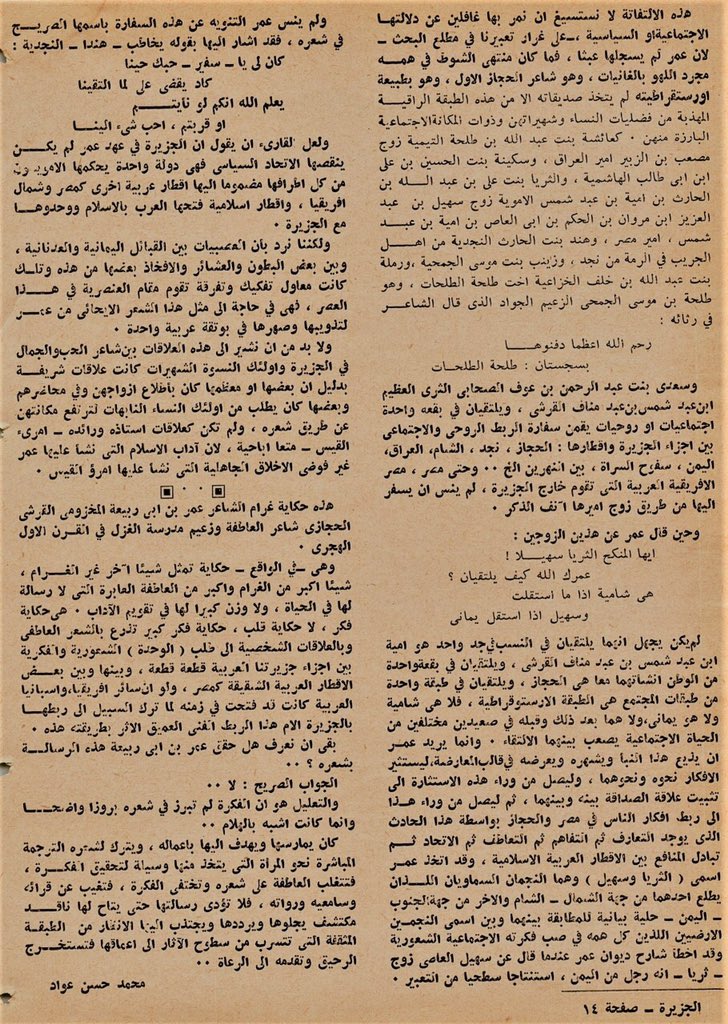 هذه الالتفاتة لا نستسيغ ان نمر بها غافلين عن دلالتها
الاجتماعية او السياسية ، ـ على غرار تعبيرنا في مطلع البحث ـ
لان عمر لم يسجلها عبثا ، فما كان منتهى الشوط في همه
مجرد اللهو بالغانيات ، وهو شاعر الحجاز الاول ، وهو بطبيعة
اورستقراطيته لم يتخذ صديقاته الا من هذه الطبقة الراقية
المهذبة من فضليات النساء وشهيراتهن وذوات المكانة الاجتماعية
البارزة منهن ٠ كعائشة بنت عبد الله بن طلحة التيمية زوج
مصعب بن الزبير امير العراق ، وسكينة بنت الحسين بن على
ابن ابى طالب الهاشمية ، والثريا بنت على بن عبد الله بن
الحارث بن امية بن عبد شمس الاموية زوج سهيل بن عبد
العزيز ابن مروان بن الحكم بن ابى العاص بن امية بن عبد
شمس ، امير مصر ، وهند بنت الحارث النجدية من اهل
الجريب في الرمة من نجد ، وزينب بنت موسى الجمحية ، ورملة
بنت عبد الله بن خلف الخزاعية اخت طلحة الطلحات ، وهو
طلحة بن موسى الجمحى الزعيم الجواد الذى قال الشاعر
في رثائه :
رحم الله اعظما دفنوهـا
بسجستان : طلحة الطلحات
وسعدى بنت عبد الرحمن بن عوف الصحابى الثرى العظيم
ابن عبد شمس بن عبد مناف القرشى ، ويلتقيان في بقعه واحدة
اجتماعيات او روحيات يقمن سفارة الربط الروحى والاجتماعى
بين اجزاء الجزيرة واقطارها : الحجاز ، نجد ، الشام، العراق،
اليمن ، سفوح السراة ، بين النهرين الخ ٠٠ وحتى مصر ، مصر
الافريقية العربية التى تقوم خارج الجزيرة ، لم ينس ان يسفر
اليها من طريق زوج اميرها آنف الذكر ٠
وحين قال عمر عن هذين الزوجين :
ايها المنكح الثريا سهيــلا !
عمرك الله كيف يلتقيان ؟
هى شامية اذا ما استقلت
وسهيل اذا استقل يمانى
لم يكن يجهل انهما يلتقيان في النسب في جد واحد هو امية
ابن عبد شمس بن عبد مناف القرشى ، ويلتقيان في بقعة واحدة
من الوطن انشأتهما معا هى الحجاز ، ويلتقيان في طبقة واحدة
من طبقات المجتمع هى الطبقة الارستوقراطية ، فلا هى شامية
ولا هو يمانى، ولا هما بعد ذلك وقبله في صعيدين مختلفين من
الحياة الاجتماعية يصعب بينهما الالتقاء ٠ وانما يريد عمر
ان يذيع هذا النبأ ويشهره ويعرضه في قالب المعارضة، ليستثير
الافكار نحوه ونحوهما ، وليصل من وراء هذه الاستثارة الى
تثبيت علاقة الصداقة بينه وبينهما ، ثم ليصل من وراء هـذا
الى ربط افكار الناس في مصر والحجاز بواسطة هذا الحادث
الذى يوجد التعارف ثم التفاهم ثم التعاطف ثم الاتحاد ثـم
تبادل المنافع بين الاقطار العربية الاسلامية ، وقد اتخذ عمـر
اسمى ( الثريا وسهيل ) وهما النجمان السماويان اللـذان
يطلع احدهما من جهة الشمال ـ الشام والاخر من جهة الجنوب
ـ اليمن ـ حلية بيانية للمطابقة بينهما وبين اسمى النجمين
الارضيين اللذين كل همه في صب فكرته الاجتماعية الشعورية
وقد اخطأ شارح ديوان عمر عندما قال عن سهيل العاصى زوج
ـ ثريا ـ انه رجل من اليمن ، استنتاجا سطحيا من التعبير ٠
ولم ينس عمر التنويه عن هذه السفارة باسمها الصريـح
في شعره ، فقد اشار اليها بقوله يخاطب ـ هندا ـ النجدية :
كان لى يا ـ سفير ـ حبك حينا
كاد يقضى على لما التقينا
يعلم الله انكم لو نايتـــم
او قربتم ، احب شىء الينـا
ولعل القارىء ان يقول ان الجزيرة في عهد عمر لم يكــن
ينقصها الاتحاد السياسى فهى دولة واحدة يحكمها الامويون
من كل اطرافها مضموما اليها اقطار عربية اخرى كمصر وشمال
افريقيا ، واقطار اسلامية فتحها العرب بالاسلام ووحدوهـا
مع الجزيرة ٠
ولكننا نرد بأن العصبيات بين القبائل اليمانية والعدنانية ،
وبين بعض البطون والعشائر والافخاذ بعضها من هذه وتلـك
كانت معاول تفكيك وتفرقة تقوم مقام العنصرية في هــذا
العصر ، فهى في حاجة الى مثل هذا الشعر الايحائى من عمـر
لتذويبها وصهرها في بوتقة عربية واحدة ٠
ولا بد من ان نشير الى هذه العلاقات بين شاعر الحب والجمال
في الجزيرة واولئك النسوة الشهيرات كانت علاقات شريفـة
بدليل ان بعضها او معظمها كان باطلاع ازواجهن وفي محاضرهم
وبعضها كان يطلب من اولئك النساء النابهات لترتفع مكانتهن
عن طريق شعره ، ولم تكن كعلاقات استاذه ورائده ـ امرىء
القيس ـ متعا اباحية ، لان آداب الاسلام التى نشأ عليها عمر
غير فوضى الاخلاق الجاهلية التى نشأ عليها امرؤ القيس ٠
هذه حكاية غرام الشاعر عمر بن ابى ربيعة المخزومى القرشى
الحجازى شاعر العاطفة وزعيم مدرسة الغزل في القرن الاول
الهجرى ٠
وهى ـ في الواقع ـ حكاية تمثل شيئا آخر غير الغـرام ،
شيئا اكبر من الغرام واكبر من العاطفة العابرة التى لا رسالة
لها في الحياة ، ولا وزن كبيرا لها في تقويم الآداب ٠ هى حكاية
فكر ، لا حكاية قلب ، حكاية فكر كبير تذرع بالشعر العاطفى
وبالعلاقات الشخصية الى طلب ( الوحدة ) الشعورية والفكرية
بين اجزاء جزيرتنا العربية قطعة قطعة ، وبينها وبين بعـض
الاقطار العربية الشقيقة كمصر ، ولو ان سائر افريقيا، واسبانيا
العربية كانت قد فتحت في زمنه لما ترك السبيل الى ربطهـا
بالجزيرة الام هذا الربط الفنى العميق الاثر بطريقته هذه ٠
بقى ان نعرف هل حقق عمر بن ابى ربيعة هذه الرسالـة
بشعره ؟ ٠٠
الجواب الصريح : لا ٠٠
والتعليل هو ان الفكرة لم تبرز في شعره بروزا واضحـا
وانما كانت اشبه بالهلام ٠٠
كان يمارسها ويهدف اليها باعماله ، ويترك لشعره الترجمة
المباشرة نحو المرأة التى يتخذ منها وسيلة لتحقيق الفكـرة ،
فتتغلب العاطفة على شعره وتختفى الفكرة ، فتغيب عن قرائه
وسامعيه ورواته ، فلا تؤدى رسالتها حتى يتاح لها ناقـد
مكتشف يجلوها ويرددها ويجتذب اليها الانظار من الطبقـة
المثقفة التى تتسرب من سطوح الآثار الى اعماقها فتستخـرج
الرحيق وتقدمه الى الرعاة ٠٠
محمد حسن عواد
الجزيرة ـ صفحة ١٤